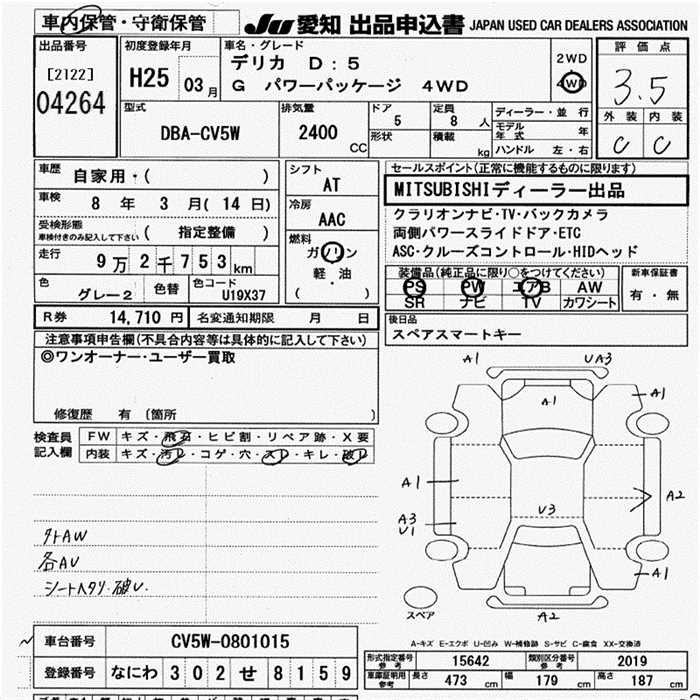 車内保管・守衛保管
JU 愛知 出品申込書 JAPAN USED CAR DEALERS ASSOCIATION
出品番号
[2122]
04264
初度登録年月
H25 03 月
車名・グレード
デリカ D:5
G パワーパッケージ 4WD
2WD
4WD
評価点
3.5
外装 内装
C C
型式
DBA-CV5W
排気量
2400 CC
ドア 5
形状
定員 8 人
積載 kg
ディーラー・並行
モデル年式 年
ハンドル 左・右
車歴 自家用・( )
車検 8 年 3 月(14 日)
受検形態
車検付きのみ記入して下さい ( 指定整備 )
走行 9万2千753km
色 グレー2
色替
色コード U19X37
シフト
AT
冷房
AAC
燃料
ガソリン
軽・油
( )
セールスポイント(正常に機能するものに限ります)
MITSUBISHIディーラー出品
クラリオンナビ・TV・バックカメラ
両側パワースライドドア・ETC
ASC・クルーズコントロール・HIDヘッド
装備品(純正品に限り○をつけてください)
PS PW エアB AW
SR ナビ TV カワシート
新車保証書
有・無
R券 14,710 円
名変通知期限 月 日
後日品
スペアスマートキー
注意事項申告欄(不具合内容等は具体的に記入して下さい)
◎ワンオーナー・ユーザー買取
修復歴 有 〔箇所 〕
検査員記入欄
FW キズ・飛石・ヒビ割・リペア跡・X要
内装 キズ・汚レ・コゲ・穴・スレ・キレ・破レ
外AW
各AU
シートヘタリ・破レ
A1
UA3
A1
A1
A1
A2
A3
U1
U3
A1
A2
スペア
A-キズ E-エクボ U-凹み W-補修跡 S-サビ C-腐食 XX-交換済
車台番号 CV5W-0801015
登録番号 なにわ 302 せ 8159
形式指定番号 参考 15642
類別区分番号 参考 2019
車庫証明用参考 長さ 473 cm 幅 179 cm 高さ 187 cm